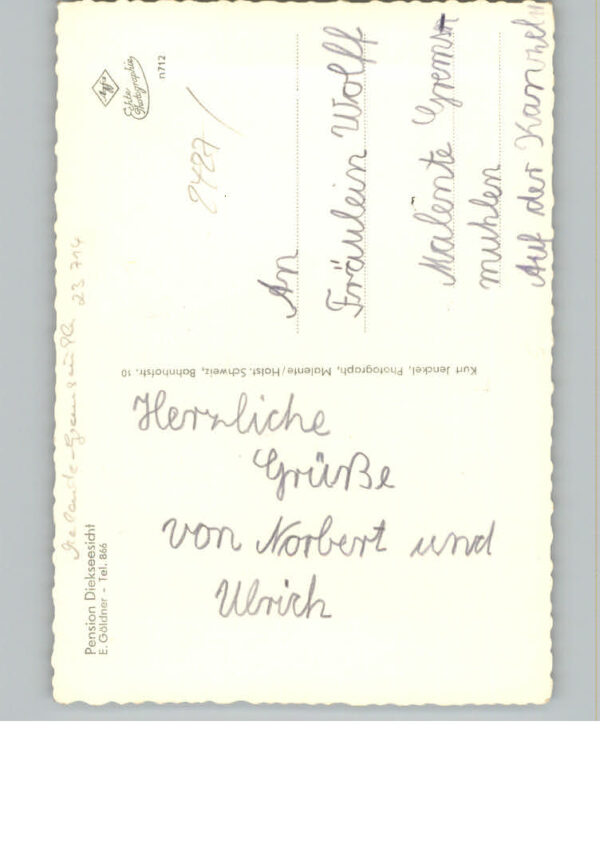 Pension Diekseesicht
E. Göldner - Tel. 866
Malente-Gremsmühlen 23 714
Herzliche
Grüße
von Norbert und
Ulrich
Kurt Jenckel, Photograph, Malente/Holst. Schweiz, Bahnhofstr. 10
Agfa
Echte
Photographie
n712
2427/
An
Fräulein Wolff
Malente Gremsm
muhlen
Auf der Kanzel 11